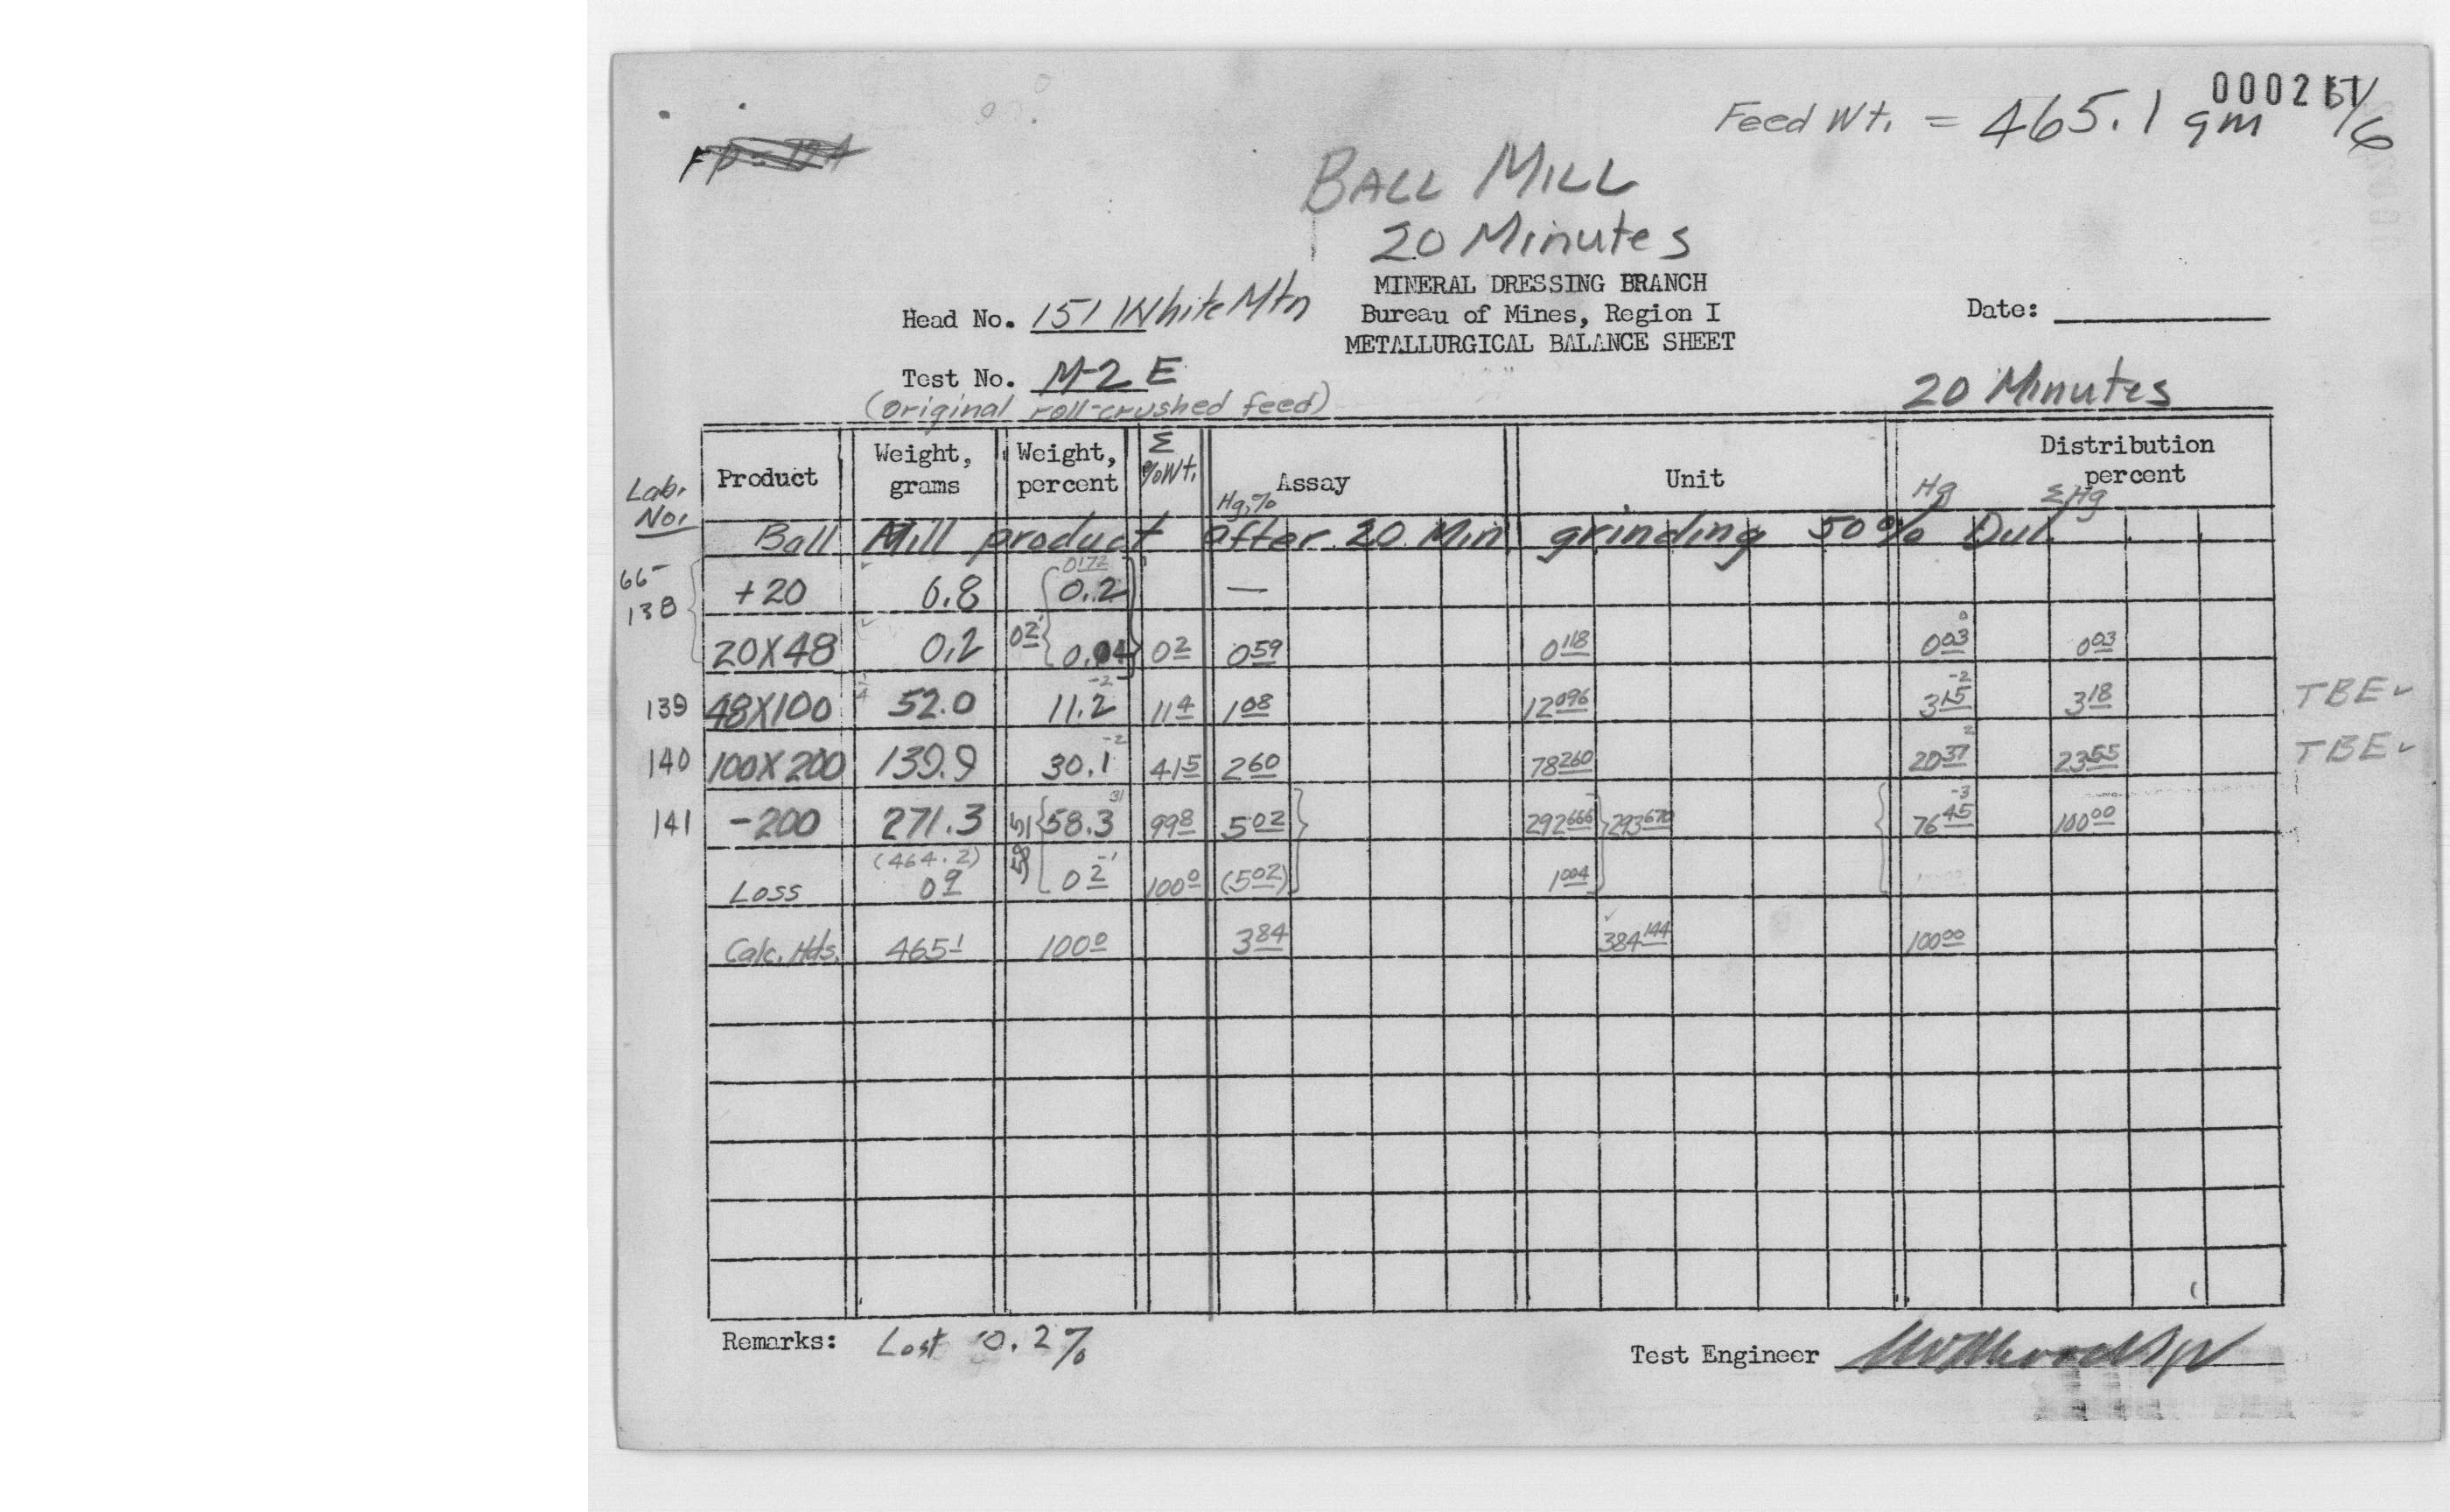 Feed Wt. = 465.1 gm
BALL MILL
20 Minutes
MINERAL DRESSING BRANCH
Head No. 151 White Mtn Bureau of Mines, Region I Date:
METALLURGICAL BALANCE SHEET
Test No. M-2 E
(original roll-crushed feed) 20 Minutes
Lab. No. Product Weight, grams Weight, percent Σ %Wt. Assay Hg,% Unit Distribution percent Hg ΣHg
Ball Mill product after 20 Min grinding 50% Dil.
66-138 +20 0.8 0.172 0.2 —
20X48 0.2 0.2 0.04 0.2 0.59 0.118 0.03 0.03
139 48X100 52.0 11.2 11.4 1.08 12.096 3.15 3.18 TBE ✓
140 100X200 139.9 30.1 41.5 2.60 78.260 20.37 23.55 TBE ✓
141 -200 271.3 58.3 99.8 5.02 292.666 293.670 76.45 100.00
(464.2)
Loss 0.9 58.5 0.2 100.0 (5.02) 1.004
Calc. Hds. 465.1 100.0 3.84 384.144 100.00
Remarks: Lost 0.2%
Test Engineer